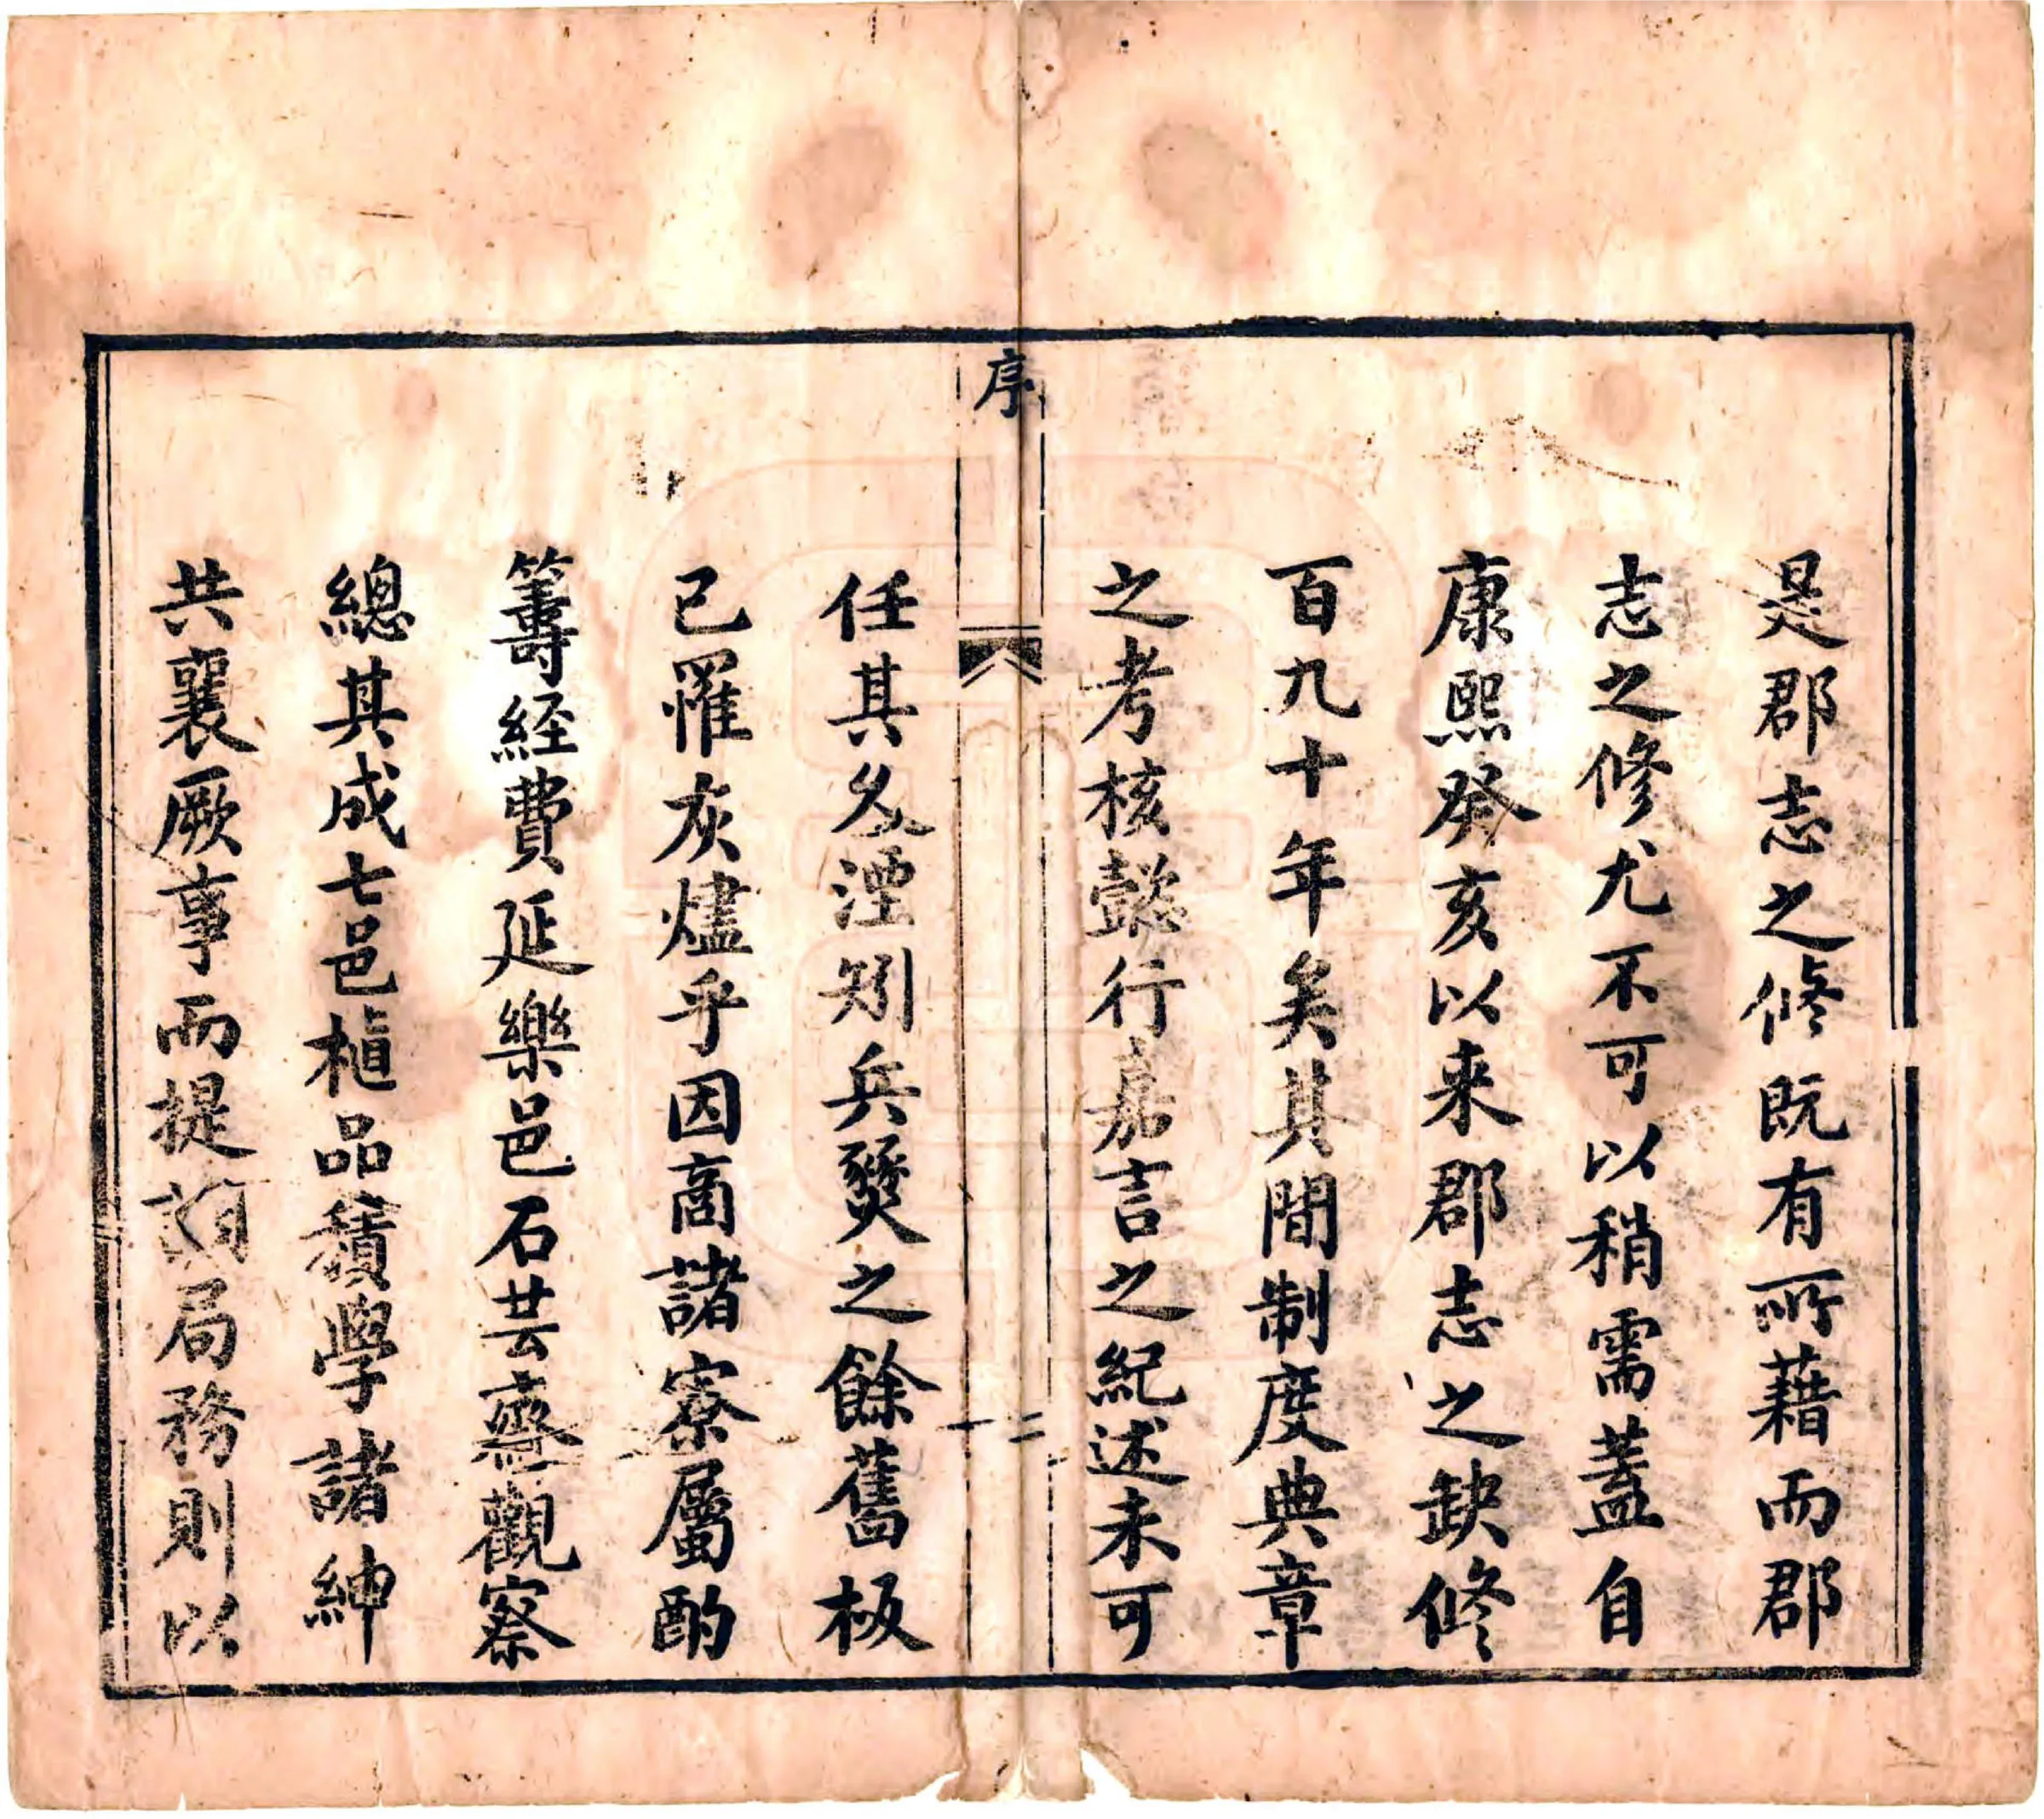 是郡志之修既有所藉而郡
志之修尤不可以稍需蓋自
康熙癸亥以来郡志之缺修
百九十年矣其間制度典章
之考核懿行嘉言之紀述未可
序
二
任其久湮矧兵燹之餘舊板
已罹灰燼乎因商諸寮屬酌
籌経費延樂邑石芸齋觀察
總其成七邑植品積學諸紳
共襄厥事而提調局務則以